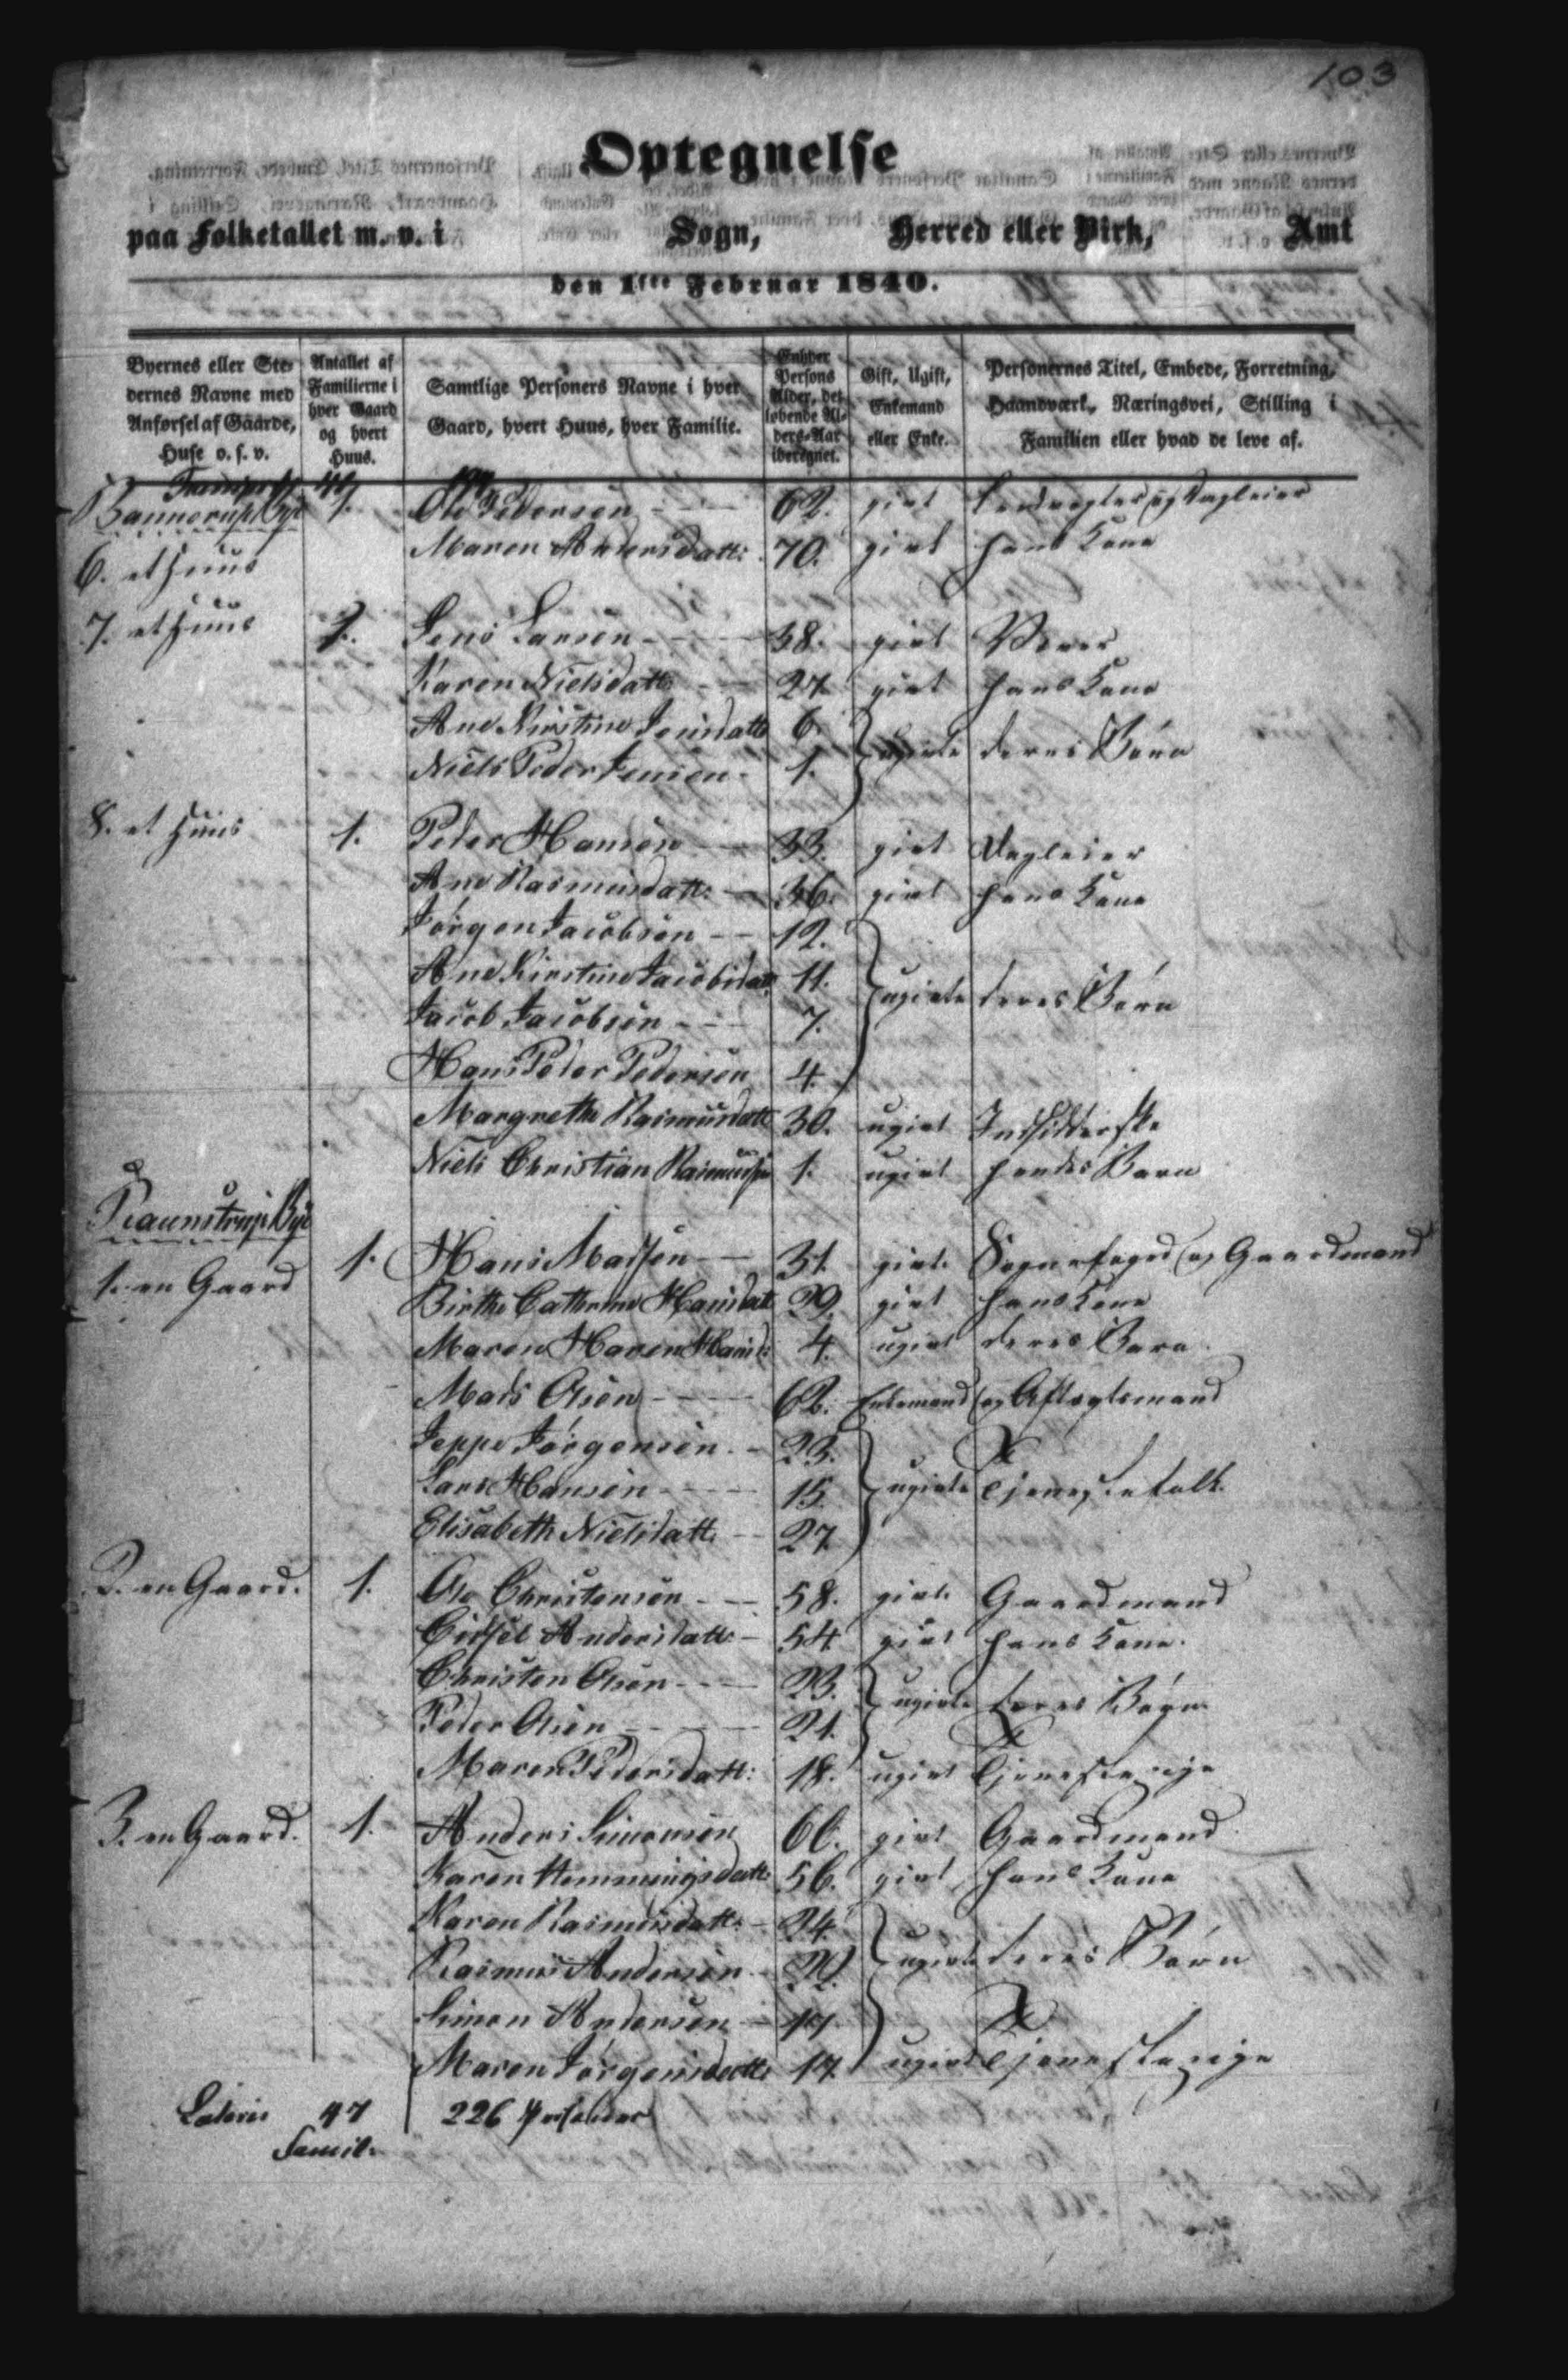 103
Optegnelse
paa Folketallet m. v. i Sogn, Herred eller Birk, Amt
den 1ste Februar 1840.
Byernes eller Stedernes Navne med Anførsel af Gaarde, Huse o. s. v. | Antallet af Familierne i hver Gaard og hvert Huus. | Samtlige Personers Navne i hver Gaard, hvert Huus, hver Familie. | Enhver Persons Alder, det løbende Alders-Aar iberegnet. | Gift, Ugift, Enkemand eller Enke. | Personernes Titel, Embede, Forretning, Haandværk, Næringsvei, Stilling i Familien eller hvad de leve af.
Bannerup Bye
6. et Huus 1. Ole Pedersen 62. givt og Dagleier
Maren Andersdatt: 70. givt hans Kone
7. et Huus 1. Jens Larsen 38. givt Væver
Karen Nielsdatt: 27 givt hans Kone
Ane Kirstine Jensdatt 6. ugivte deres Børn
Niels Peder Jensen 1.
8. et Huus 1. Peder Hansen 33. givt Dagleier
Ane Rasmusdatt: 36. givt hans Kone
Jørgen Jacobsen 12.
Ane Kirstine Jacobsdatt 11. ugivte deres Børn
Jacob Jacobsen 7.
Hans Peder Pedersen 4.
Margrethe Rasmusdatt 30. ugivt Indsidderske
Niels Christian Rasmussen 1. ugivt hendes Barn
Ravnstrup Bye
1. en Gaard 1. Hans Madsen 31. givt Sognefoged og Gaardmand
Birthe Cathrine Hansdatt 29. givt hans Kone
Maren Karen Hansd: 4. ugivt deres Barn
Mads Olsen 62. Enkemand og Aftægtsmand
Jeppe Jørgensen 23.
Lars Hansen 15. ugivte Tjenestefolk
Elisabeth Nielsdatt. 27.
2. en Gaard. 1. Ole Christensen 58. givt Gaardmand
Cidsel Andersdatt 54 givt hans Kone.
Christen Olsen 23. ugivte deres Børn
Peder Olsen 21.
Maren Pedersdatt: 18. ugivt Tjenestepige
3. en Gaard. 1. Anders Simonsen 60. givt Gaardmand
Karen Hemmingsdatt 56. givt hans Kone
Karen Rasmusdatt: 24. ugivte deres Børn
Rasmus Andersen 22.
Simon Andersen 17
Maren Jørgensdatt: 17. ugivt Tjenestepige
Lateris 47 226 Personer
Famil.